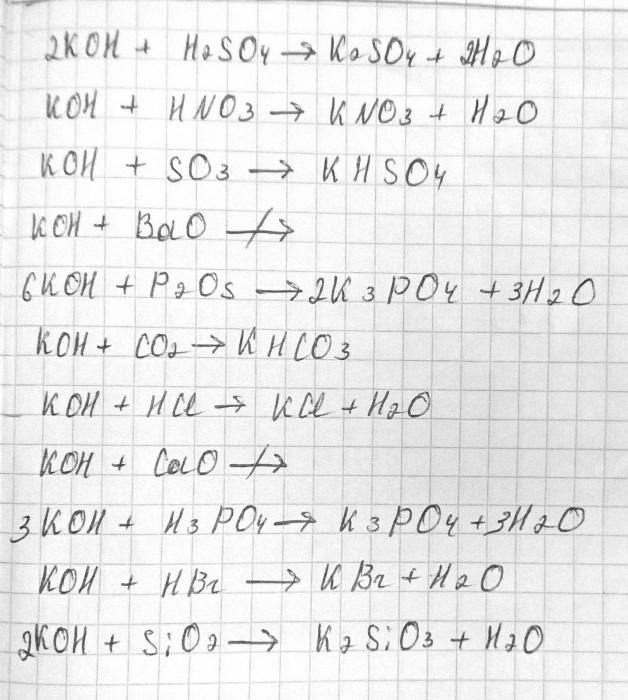 2KOH + H2SO4 → K2SO4 + 2H2O
KOH + HNO3 → KNO3 + H2O
KOH + SO3 → KHSO4
KOH + BaO ↛
6KOH + P2O5 → 2K3PO4 + 3H2O
KOH + CO2 → KHCO3
KOH + HCl → KCl + H2O
KOH + CaO ↛
3KOH + H3PO4 → K3PO4 + 3H2O
KOH + HBr → KBr + H2O
2KOH + SiO2 → K2SiO3 + H2O